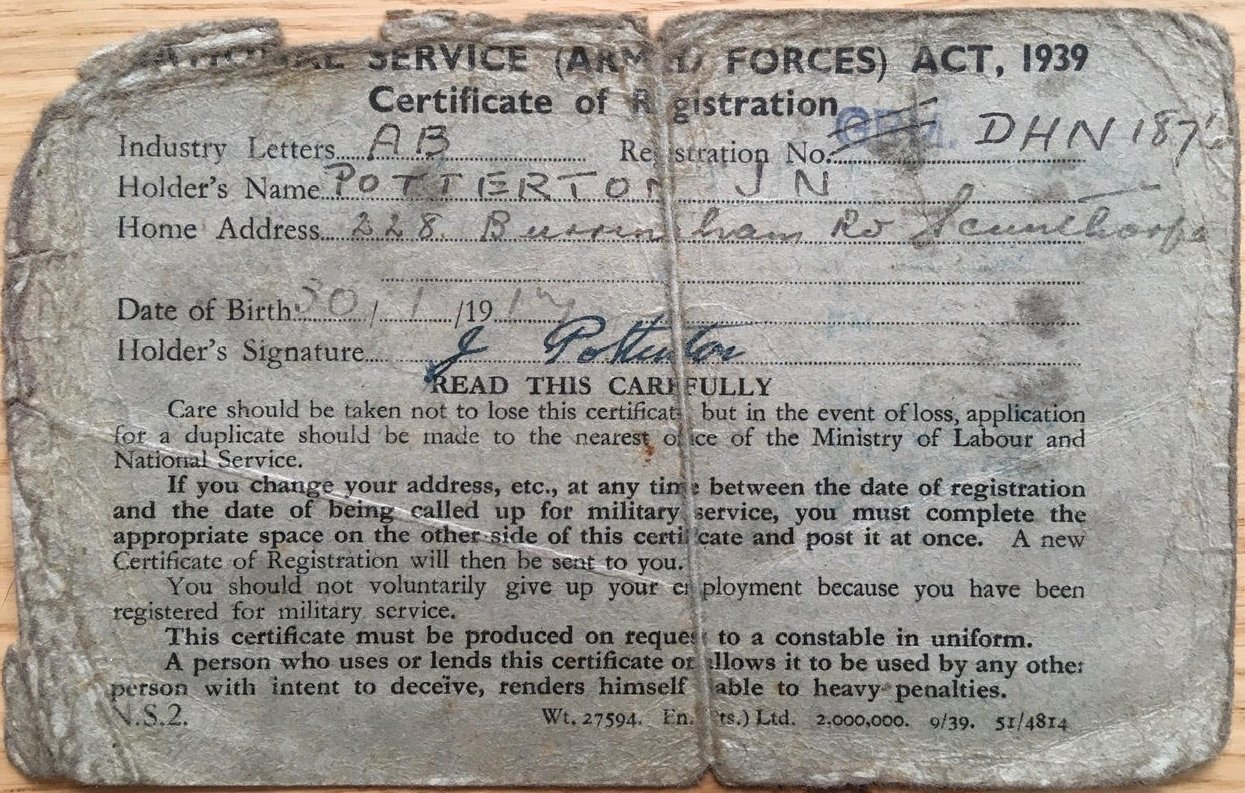 NATIONAL SERVICE (ARMED FORCES) ACT, 1939
Certificate of Registration
Industry Letters AB Registration No. GFM. DHN 187
Holder's Name POTTERTON J N
Home Address 228 Burringham Rd Scunthorpe
Date of Birth 30/1/19
Holder's Signature J Potterton
READ THIS CAREFULLY
Care should be taken not to lose this certificate but in the event of loss, application
for a duplicate should be made to the nearest office of the Ministry of Labour and
National Service.
If you change your address, etc., at any time between the date of registration
and the date of being called up for military service, you must complete the
appropriate space on the other side of this certificate and post it at once. A new
Certificate of Registration will then be sent to you.
You should not voluntarily give up your employment because you have been
registered for military service.
This certificate must be produced on request to a constable in uniform.
A person who uses or lends this certificate or allows it to be used by any other
person with intent to deceive, renders himself liable to heavy penalties.
N.S.2. Wt. 27594. ts.) Ltd. 2,000,000. 9/39. 51/4814